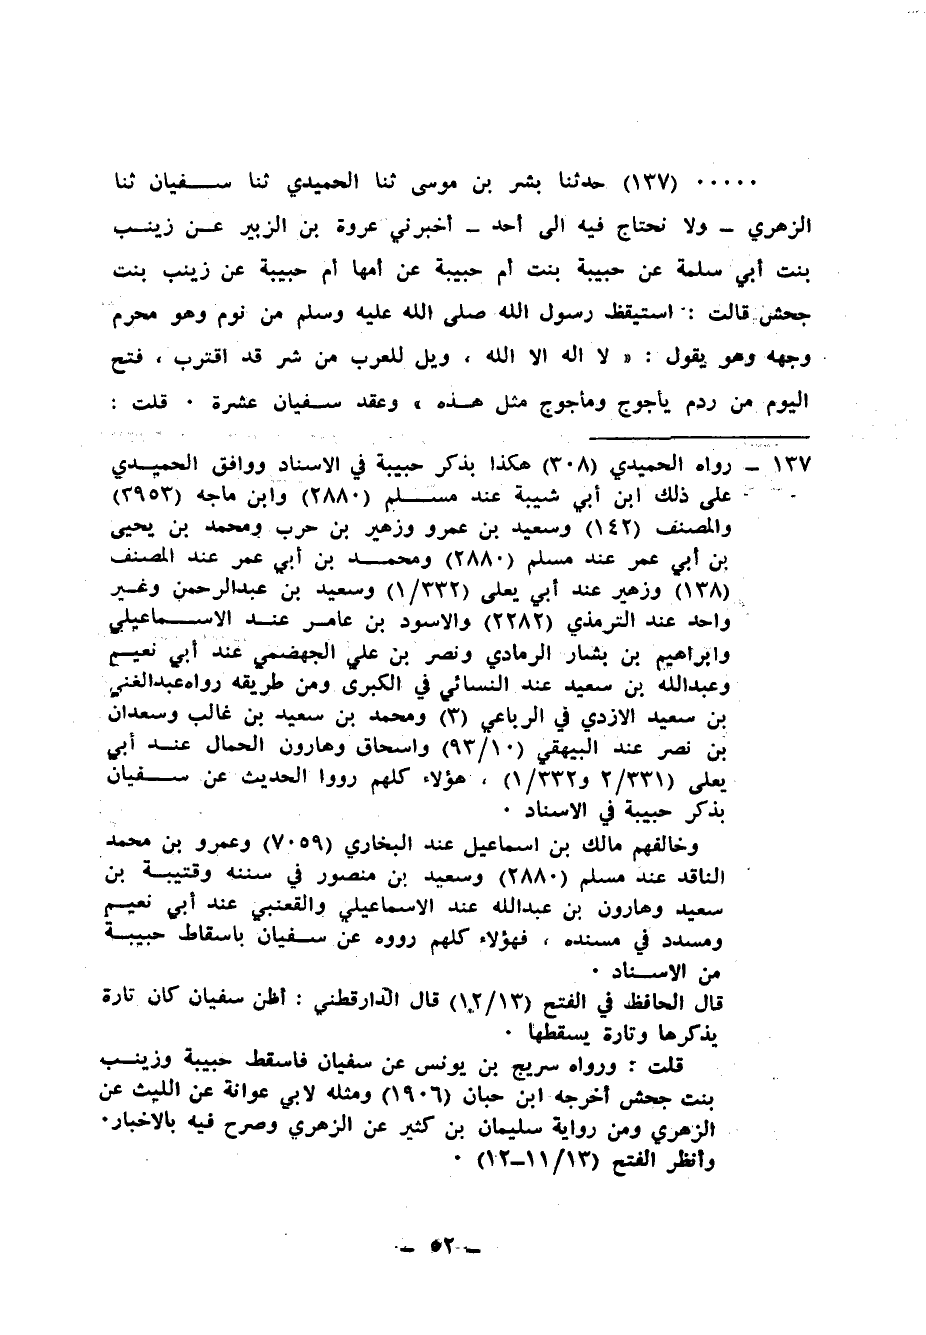 ٠٠٠٠٠ (١٣٧) حدثنا بشر بن موسى ثنا الحميدي ثنا سفيان ثنا
الزهري ـ ولا نحتاج فيه الى أحد ـ أخبرني عروة بن الزبير عن زينب
بنت أبي سلمة عن حبيبة بنت أم حبيبة عن أمها أم حبيبة عن زينب بنت
جحش قالت : استيقظ رسول الله صلى الله عليه وسلم من نوم وهو محرم
وجهه وهو يقول : « لا اله الا الله ، ويل للعرب من شر قد اقترب ، فتح
اليوم من ردم يأجوج ومأجوج مثل هذه » وعقد سفيان عشرة ٠ قلت :
١٣٧ ـ رواه الحميدي (٣٠٨) هكذا بذكر حبيبة في الاسناد ووافق الحميدي
على ذلك ابن أبي شيبة عند مسلم (٢٨٨٠) وابن ماجه (٣٩٥٣)
والمصنف (١٤٢) وسعيد بن عمرو وزهير بن حرب ومحمد بن يحيى
بن أبي عمر عند مسلم (٢٨٨٠) ومحمد بن أبي عمر عند المصنف
(١٣٨) وزهير عند أبي يعلى (١/٣٣٢) وسعيد بن عبدالرحمن وغير
واحد عند الترمذي (٢٢٨٢) والاسود بن عامر عند الاسماعيلي
وابراهيم بن بشار الرمادي ونصر بن علي الجهضمي عند أبي نعيم
وعبدالله بن سعيد عند النسائي في الكبرى ومن طريقه رواه عبدالغني
بن سعيد الازدي في الرباعي (٣) ومحمد بن سعيد بن غالب وسعدان
بن نصر عند البيهقي (٩٣/١٠) واسحاق وهارون الحمال عند أبي
يعلى (٢/٣٣١ و١/٣٣٢) ، هؤلاء كلهم رووا الحديث عن سفيان
بذكر حبيبة في الاسناد ٠
وخالفهم مالك بن اسماعيل عند البخاري (٧٠٥٩) وعمرو بن محمد
الناقد عند مسلم (٢٨٨٠) وسعيد بن منصور في سننه وقتيبة بن
سعيد وهارون بن عبدالله عند الاسماعيلي والقعنبي عند أبي نعيم
ومسدد في مسنده ، فهؤلاء كلهم رووه عن سفيان باسقاط حبيبة
من الاسناد ٠
قال الحافظ في الفتح (١٢/١٣) قال الدارقطني : أظن سفيان كان تارة
يذكرها وتارة يسقطها ٠
قلت : ورواه سريج بن يونس عن سفيان فاسقط حبيبة وزينب
بنت جحش أخرجه ابن حبان (١٩٠٦) ومثله لابي عوانة عن الليث عن
الزهري ومن رواية سليمان بن كثير عن الزهري وصرح فيه بالاخبار٠
وأنظر الفتح (١١/١٣ـ١٢) ٠
ـ ٥٢ ـ